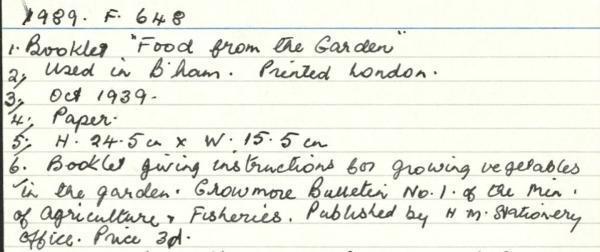 1989. F. 648
1. Booklet "Food from the Garden"
2. Used in B'ham. Printed London.
3. Oct 1939.
4. Paper.
5. H. 24.5 cm x W. 15.5 cm
6. Booklet giving instructions for growing vegetables
in the garden. Growmore Bulletin No. 1. of the Min.
of Agriculture & Fisheries. Published by H M. Stationery
Office. Price 3d.